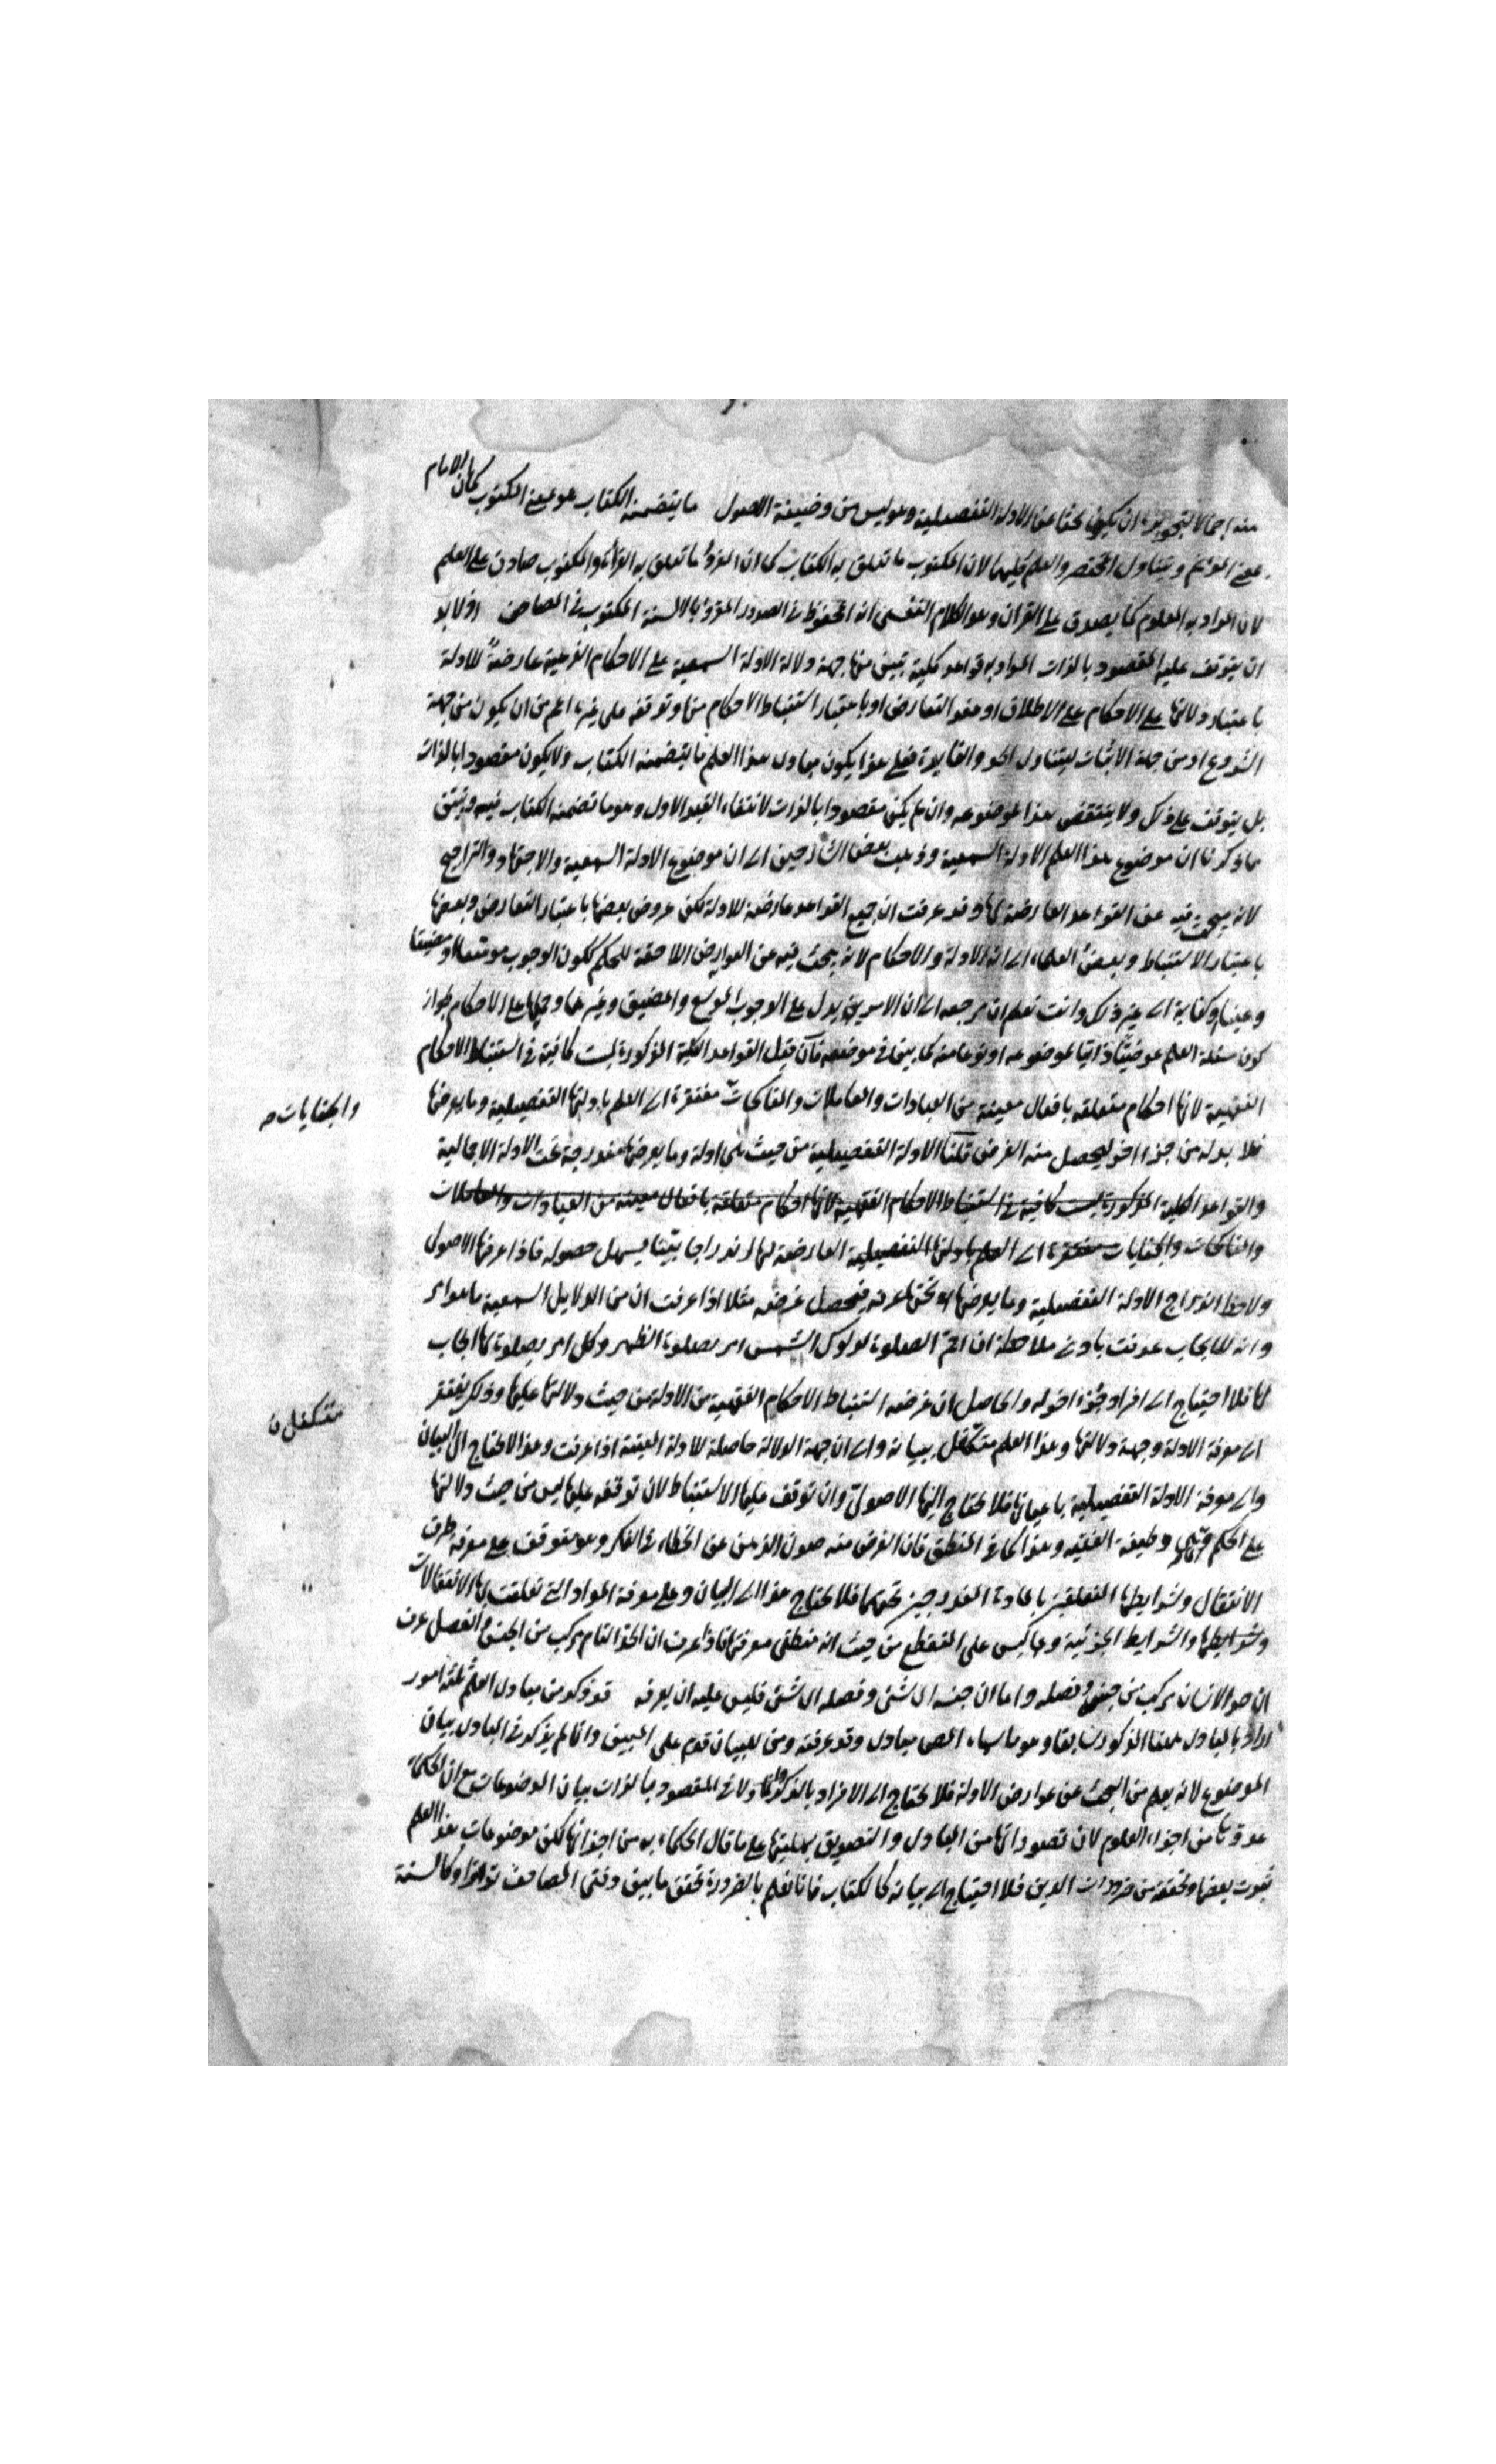 منه اجمالا لتجويزه ان يكون بحثا عن الادلة التفصيلية وهو ليس من وظيفة الاصول ما يتضمنه الكتاب هو بمعنى المكتوب كما ان الامام
بمعنى المؤتم ويتناول المختصر والعلم كليهما لان المكتوب ما تعلق به الكتاب كما ان المقروء ما تعلق به القراءة والمكتوب صادق على العلم
لان المراد به المعلوم كما يصدق على القرآن وهو الكلام النفسى انه المحفوظ فى الصدور المقروء بالالسنة المكتوب فى المصاحف اذ لا بد
ان يتوقف عليه المقصود بالذات المراد به قواعد كلية تبين منها جهة دلالة الادلة السمعية على الاحكام الفرعية عارضة للادلة
باعتبار دلالتها على الاحكام على الاطلاق او عند التعارض او باعتبار استنباط الاحكام منها وتوقفه على غيره اعم من ان يكون من جهة
الشروع او من جهة الاثبات ليتناول الحد والفايدة فعلى هذا يكون مبادى هذا العلم ما يتضمنه الكتاب ولا يكون مقصودا بالذات
بل يتوقف على ذلك ولا ينتقض هذا بموضوعه وان لم يكن مقصودا بالذات لانتفاء القيد الاول وهو ما تضمنه الكتاب فيه وتبين
بما ذكرنا ان موضوع هذا العلم الادلة السمعية وذهب بعض الشارحين الى ان موضوع الادلة السمعية والاجتهاد والتراجيح
لانه يبحث فيه عن القواعد العارضة لها وقد عرفت ان جميع القواعد عارضة للادلة لكن عروض بعضها باعتبار التعارض وبعضها
باعتبار الاستنباط وبعض العلماء الى انه الادلة والاحكام لانه يبحث فيه عن العوارض اللاحقة للحكم ككون الوجوب موسعا او مضيقا
وعينا وكفاية الى غير ذلك وانت تعلم ان مرجعه الى ان الامر يدل على الوجوب الموسع والمضيق وغيرهما وحملها على الاحكام لجواز
كون مسئلة العلم عرضيا ذاتيا لموضوعه او نوعا منه كما بين فى موضعه فان قيل القواعد الكلية المذكورة ليست كافية فى استنباط الاحكام
الفقهية لانها احكام متعلقة بافعال معينة من العبادات والمعاملات والمناكحات مفتقرة الى العلم بادلتها التفصيلية وما يعرضها
والجنايات صح
فلا بد له من جزء اخر ليحصل منه الغرض قلنا الادلة التفصيلية من حيث هى ادلة وما يعرضها مندرجة تحت الادلة الاجمالية
والقواعد الكلية المذكورة ليست كافية فى استنباط الاحكام الفقهية لانها احكام متعلقة بافعال معينة من العبادات والمعاملات
والمناكحات والجنايات مفتقرة الى العلم بادلتها التفصيلية العارضة لها اندراجا بينا يسهل حصوله فاذا عرفها الاصولى
ولاحظ اندراج الادلة التفصيلية وما يعرضها تحتها عرفه فيحصل غرضه مثلا اذا عرفت ان من الدلايل السمعية ما هو امر
وانه للايجاب عرفت بادنى ملاحظة ان اقم الصلوة لدلوك الشمس امر بصلوة الظهر وكل امر بصلوة لها ايجاب
لها فلا احتياج الى افراد جزء اخر له والحاصل ان غرضه استنباط الاحكام الفقهية من الادلة من حيث دلالتها عليها وذلك يفتقر
متكفل ن
الى معرفة الادلة وجهة دلالتها وهذا العلم متكفل ببيانه والى ان جهة الدلالة حاصلة للادلة المعينة اذا عرفت وهذا لا يحتاج الى البيان
والى معرفة الادلة التفصيلية باعيانها فلا يحتاج اليها الاصولى وان توقف عليها الاستنباط لان توقفه عليها ليس من حيث دلالتها
على الحكم وهى وظيفة الفقيه وهذا كما فى المنطق فان الغرض منه صون الذهن عن الخطاء فى الفكر وهو يتوقف على معرفة طرق
الانتقال وشرايطها المتعلقين بالمادة المندرجين تحتهما فلا يحتاج هذا الى البيان وعلى معرفة المواد التى تعلقت بها الانتقالات
وشرايطها والشرايط الجزئية وهما ليس على المنطقى من حيث انه منطقى معرفتها فاذا عرف ان الحد التام يركب من الجنس والفصل عرف
ان حد الانسان يركب من جنسه وفصله واما ان جنسه اى شئ وفصله اى شئ فليس عليه ان يعرفه قد ذكر من مبادى العلم ثلثة امور
اراد بالمبادى ههنا المذكور سابقا وهو ما سماه المص مبادى وقد عرفته ومن للبيان قدم على المبين وانما لم يذكر فى المبادى بيان
الموضوع لانه يعلم من البحث عن عوارض الادلة فلا يحتاج الى الافراد بالذكر ولان المقصود بالذات بيان الموضوعات مع ان الحكماء
عدوها من اجزاء العلوم لان تصوراتها من المبادى والتصديق بهليتها على ما قال الحكماء به من اجزائها لكن موضوعات هذا العلم
ثبوت بعضها وتحققه من ضروريات الدين فلا احتياج الى بيانه كالكتاب فانا نعلم بالضرورة تحقق ما بين دفتى المصاحف تواترا وكالسنة